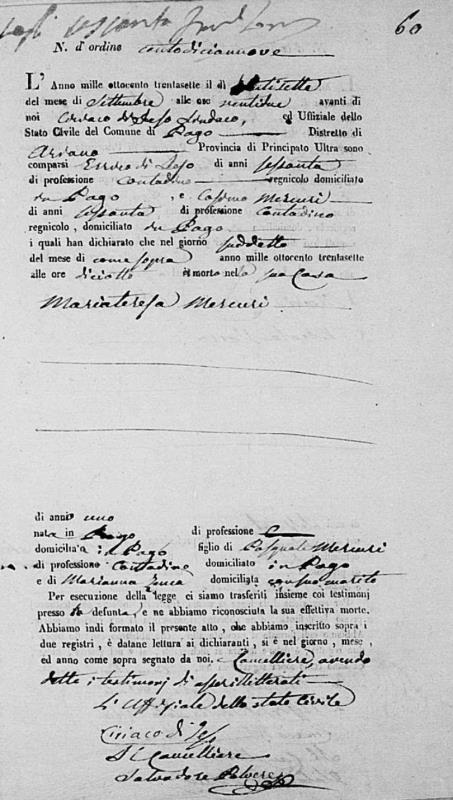 60
N. d'ordine centodiciannove
L'Anno mille ottocento trentasette il dì ventisette
del mese di Settembre alle ore ventidue avanti di
noi Ciriaco di Jeso Sindaco, ed Uffiziale dello
Stato Civile del Comune di Pago Distretto di
Ariano Provincia di Principato Ultra sono
comparsi di Jeso di anni sessanta
di professione contadino regnicolo domiciliato
in Pago e Cosimo Mercuri
di anni sessanta di professione contadino
regnicolo, domiciliato in Pago
i quali han dichiarato che nel giorno suddetto
del mese di come sopra anno mille ottocento trentasette
alle ore diciotto è morto nella sua Casa
Mariateresa Mercuri
di anni uno
nata in Pago di professione
domiciliata in Pago figlio di Pasquale Mercuri
di professione Contadino domiciliato in Pago
e di Marianna domiciliata con suo marito
Per esecuzione della legge ci siamo trasferiti insieme coi testimonj
presso la defunta, e ne abbiamo riconosciuta la sua effettiva morte.
Abbiamo indi formato il presente atto, che abbiamo inscritto sopra i
due registri, è datane lettura ai dichiaranti, si è nel giorno, mese,
ed anno come sopra segnato da noi, e Cancelliere, avendo
detto i testimonj di essere illitterati
L'Uffiziale dello stato Civile
Ciriaco di Jeso
Il Cancelliere
Salvadore Polvere